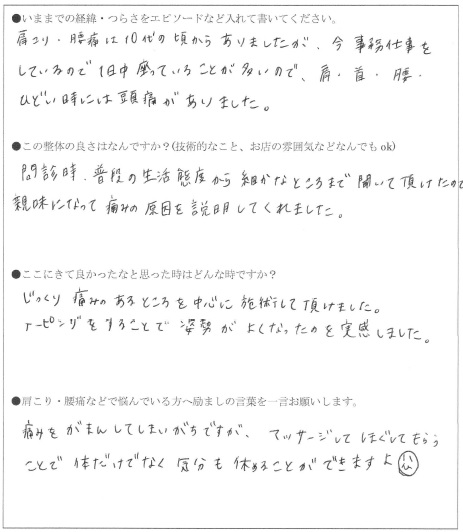 ●いままでの経緯・つらさをエピソードなど入れて書いてください。
肩こり・腰痛は10代の頃からありましたが、今事務仕事を
しているので1日中座っていることが多いので、肩・首・腰・
ひどい時には頭痛がありました。
●この整体の良さはなんですか?(技術的なこと、お店の雰囲気などなんでもok)
問診時、普段の生活態度から細かなところまで聞いて頂けたので
親味になって痛みの原因を説明してくれました。
●ここにきて良かったなと思った時はどんな時ですか?
じっくり痛みのあるところを中心に施術して頂けました。
テーピングをすることで姿勢がよくなったのを実感しました。
●肩こり・腰痛などで悩んでいる方へ励ましの言葉を一言お願いします。
痛みをがまんしてしまいがちですが、マッサージしてほぐしてもらう
ことで体だけでなく気分も休めることができますよ